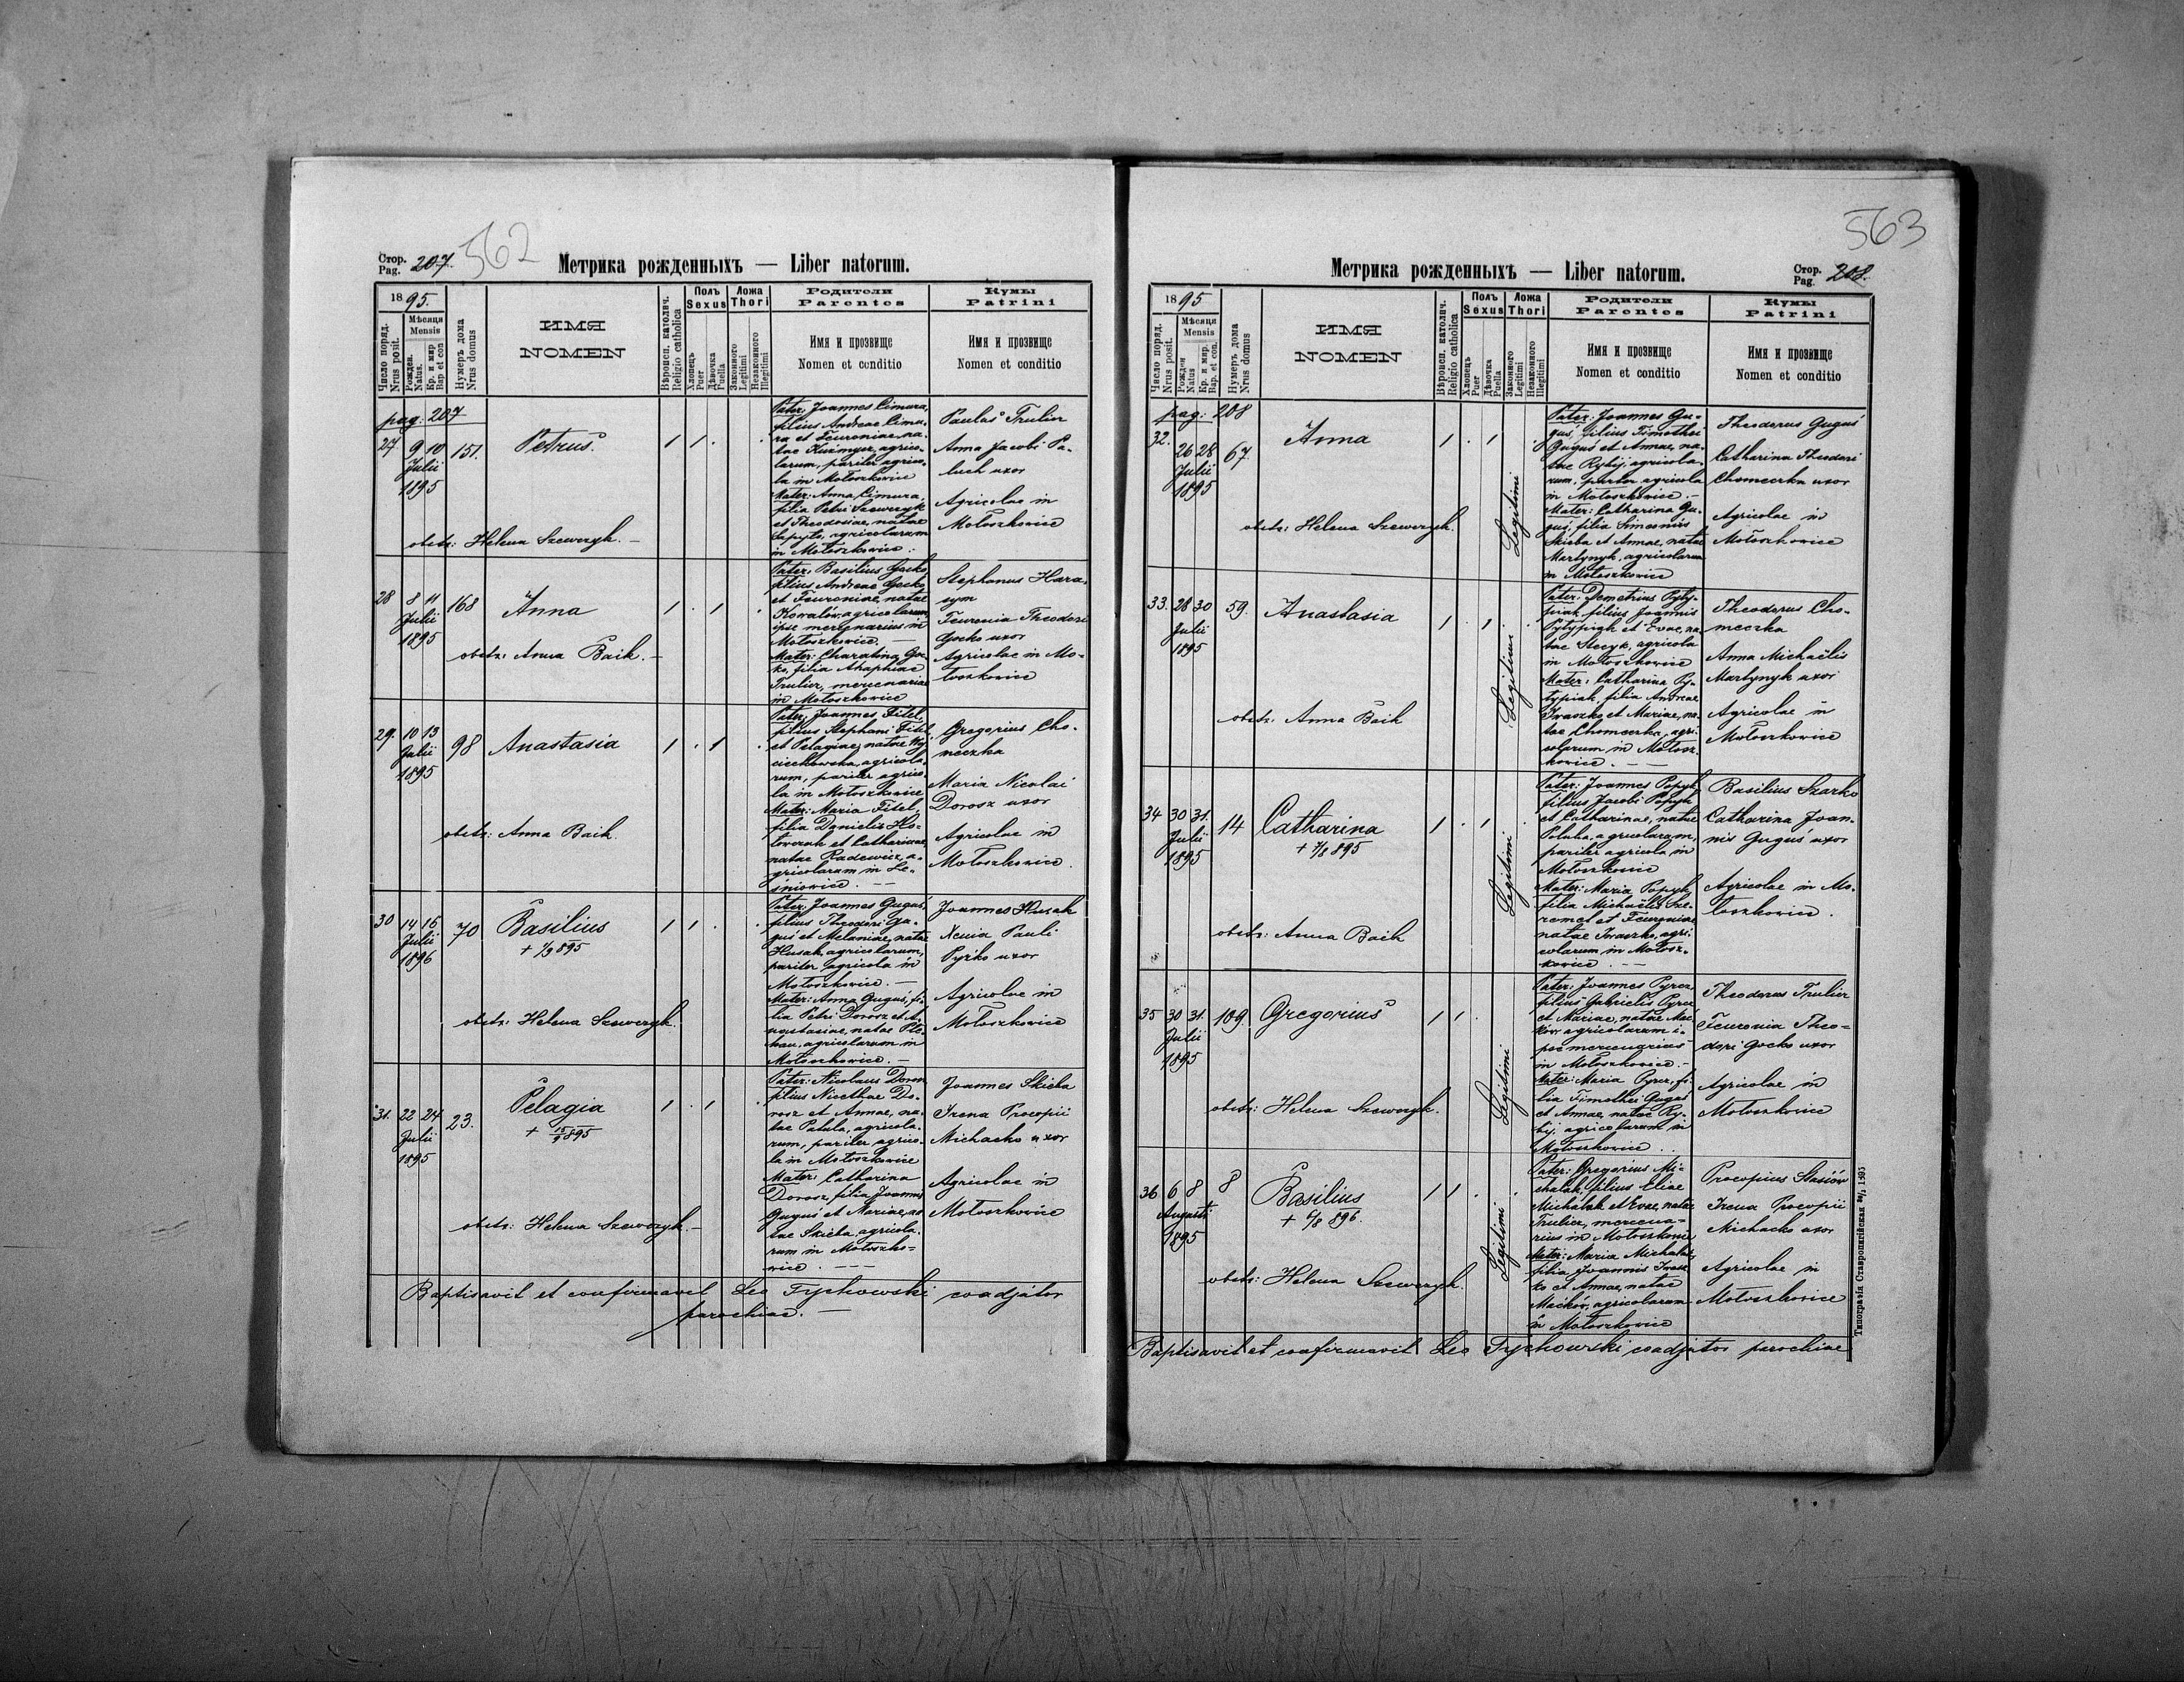 Стор.
Pag. 207.
562
Метрика рожденныхъ — Liber natorum.
18 95.
Число поряд.
Nrus posit.
Мѣсяця
Mensis
Рожден.
Natus.
Кр. и мир
Bap et con
Нумеръ дома
Nrus domus
ИМЯ
NOMEN
Вѣроисп. католич.
Religio catholica
Полъ
Sexus
Хлопець
Puer
Дѣвочка
Puella
Ложа
Thori
Законного
Legitimi
Незаконного
Illegitimi
Родители
Parentes
Имя и прозвище
Nomen et conditio
Кумы
Patrini
Имя и прозвище
Nomen et conditio
pag: 207
27. 9 10 151. Petrus
Julii
1895
obstr: Helena Szewczyk. —
Pater: Joannes Cimura,
filius Andreae Cimu-
ra et Feuroniae, na-
tae Kuźmycz, agrico-
larum, pariter agrico-
la in Mołoszkowice
Mater: Anna Cimura,
filia Petri Szewczyk
et Theodosiae, natae
Sapyto, agricolarum
in Mołoszkowice :
Paulus Trulier
Anna Jacobi Pa-
luch uxor
Agricolae in
Mołoszkowice
28 8 11 168 Anna
Julii
1895
obstr: Anna Baik. —
Pater: Basilius Gocko,
filius Andreae Gocko
et Feuroniae, natae
Kowalów, agricolarum,
ipse mercenarius in
Mołoszkowice. —
Mater: Charatina Goc-
ko, filia Ahaphiae
Trulier, mercenariae
in Mołoszkowice
Stephanus Hara-
sym
Feuronia Theodori
Gocko uxor
Agricolae in Mo-
łoszkowice
29. 10 13 98 Anastasia
Julii
1895
obstr: Anna Baik.
Pater: Joannes Fitel,
filius Stephani Fitel
et Pelagiae, natae Woj-
ciechowska, agricola-
rum, pariter agrico-
la in Mołoszkowice
Mater: Maria Fitel,
filia Danielis Ho-
łowczak et Catharinae,
natae Radewicz, a-
gricolarum in Le-
śniowice. —
Gregorius Cho-
meczka
Maria Nicolai
Dorosz uxor
Agricolae in
Mołoszkowice.
30 14 16 70 Basilius
Julii
1896
+ 1/9 895
obstr: Helena Szewczyk.
Pater: Joannes Guguś,
filius Theodori Gu-
guś et Melaniae, natae
Husak, agricolarum,
pariter agricola in
Mołoszkowice. —
Mater: Anna Guguś, fi-
lia Petri Dorosz et A-
nastasiae, natae Ple-
kan, agricolarum in
Mołoszkowice. —
Joannes Husak
Xenia Pauli
Pyżko uxor
Agricolae in
Mołoszkowice
31. 22 24 23. Pelagia
Julii
1895
+ 15/9 895
obstr: Helena Szewczyk. —
Pater: Nicolaus Dorosz
filius Nicethae Do-
rosz et Annae, na-
tae Patuła, agricola-
rum, pariter agrico-
la in Mołoszkowice
Mater: Catharina
Dorosz, filia Joannis
Guguś et Mariae, na-
tae Skieba, agricola-
rum in Mołoszko-
wice. — —
Joannes Skieba
Irena Procopii
Michacko uxor
Agricolae in
Mołoszkowice
Baptisavit et confirmavit Leo Tychowski coadjutor
parochiae. —
563
Метрика рожденныхъ — Liber natorum.
Стор.
Pag. 208.
18 95
Число поряд.
Nrus posit.
Мѣсяця
Mensis
Рожден
Natus
Кр. и мир.
Bap. et con.
Нумеръ дома
Nrus domus
ИМЯ
NOMEN
Вѣроисп. католич.
Religio catholica
Полъ
Sexus
Хлопець
Puer
Дѣвочка
Puella
Ложа
Thori
Законного
Legitimi
Незаконного
Illegitimi
Родители
Parentes
Имя и прозвище
Nomen et conditio
Кумы
Patrini
Имя и прозвище
Nomen et conditio
pag: 208
32. 26 28 67. Anna
Julii
1895
obstr: Helena Szewczyk.
Legitimi
Pater: Joannes Gu-
guś, filius Timothei
Guguś et Annae, na-
tae Rybij, agricola-
rum, pariter agricola
in Mołoszkowice. —
Mater: Catharina Gu-
guś, filia Simeonis
Skieba et Annae, natae
Martynyk, agricolarum
in Mołoszkowice
Theodorus Guguś
Catharina Theodori
Chomeczka uxor
Agricolae in
Mołoszkowice
33. 28 30 59. Anastasia
Julii
1895
obstr: Anna Baik
Legitimi
Pater: Demetrius Pyty-
piak, filius Joannis
Pytypiak et Evae, na-
tae Stecyk, agricola
in Mołoszkowice
Mater: Catharina Py-
typiak, filia Andreae
Iwaszko et Mariae, na-
tae Chomeczka, agri-
colarum in Mołosz-
kowice. — —
Theodorus Cho-
meczka
Anna Michaëlis
Martynyk uxor
Agricolae in
Mołoszkowice
34 30 31. 14 Catharina
Julii
1895
+ 7/8 895
obstr: Anna Baik
Legitimi
Pater: Joannes Popyk,
filius Jacobi Popyk
et Catharinae, natae
Poluha, agricolarum,
pariter agricola in
Mołoszkowice
Mater: Maria Popyk,
filia Michaëlis Sze-
remet et Feuroniae,
natae Iwaszko, agri-
colarum in Mołosz-
kowice. — —
Basilius Szarko
Catharina Joan-
nis Guguś uxor
Agricolae in Mo-
łoszkowice.
35 30 31. 109. Gregorius
Julii
1895
obstr: Helena Szewczyk.
Legitimi
Pater: Joannes Pyrcz,
filius Gabrielis Pyrcz
et Mariae, natae Mać-
ków, agricolarum i-
pse mercenarius
in Mołoszkowice. —
Mater: Maria Pyrcz, fi-
lia Timothei Guguś
et Annae, natae Ry-
bij, agricolarum in
Mołoszkowice.
Theodorus Trulier
Feuronia Theo-
dori Gocko uxor
Agricolae in
Mołoszkowice
36 6 8 8 Basilius
Augusti
1895
+ 6/8 896.
obstr: Helena Szewczyk.
Legitimi
Pater: Gregorius Mi-
chalak, filius Eliae
Michalak et Evae, natae
Trulier, mercena-
rius in Mołoszkowice
Mater: Maria Michalak,
filia Joannis Iwasz-
ko et Annae, natae
Maćków, agricolarum
in Mołoszkowice
Procopius Stasiów
Irena Procopii
Michacko uxor
Agricolae in
Mołoszkowice
Baptisavit et confirmavit Leo Tychowski coadjutor parochiae
Типографія Ставропигійская 1895